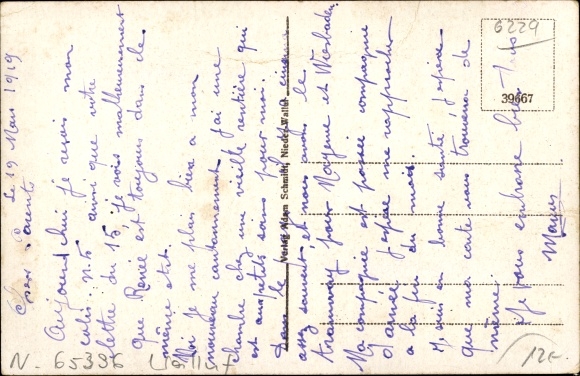 Le 19 Mars 1919
Chers Parents
Aujourd'hui je reçois mon
colis n:5 ainsi que votre
lettre du 15. Je vois malheureusement
que Renée est toujours dans de
même état.
Moi je me plais bien a mon
nouveau cantonnement. J'ai une
chambre chez une vieille rentière qui
est aux petits soins pour moi.
Dans le
assez souvent, et nous avons le
tramway pour Mayence et Wiesbaden.
Ma compagnie est passée compagnie
d'armée j'espère me rapprocher
a la fin du mois.
Je suis en bonne santé j'espère
que ma carte vous trouvera de
même.
Je vous embrasse bien Tous
Verlag Adam Schmitt, Nieder-Walluf
39667
6229
N. 65396 Walluf
12F